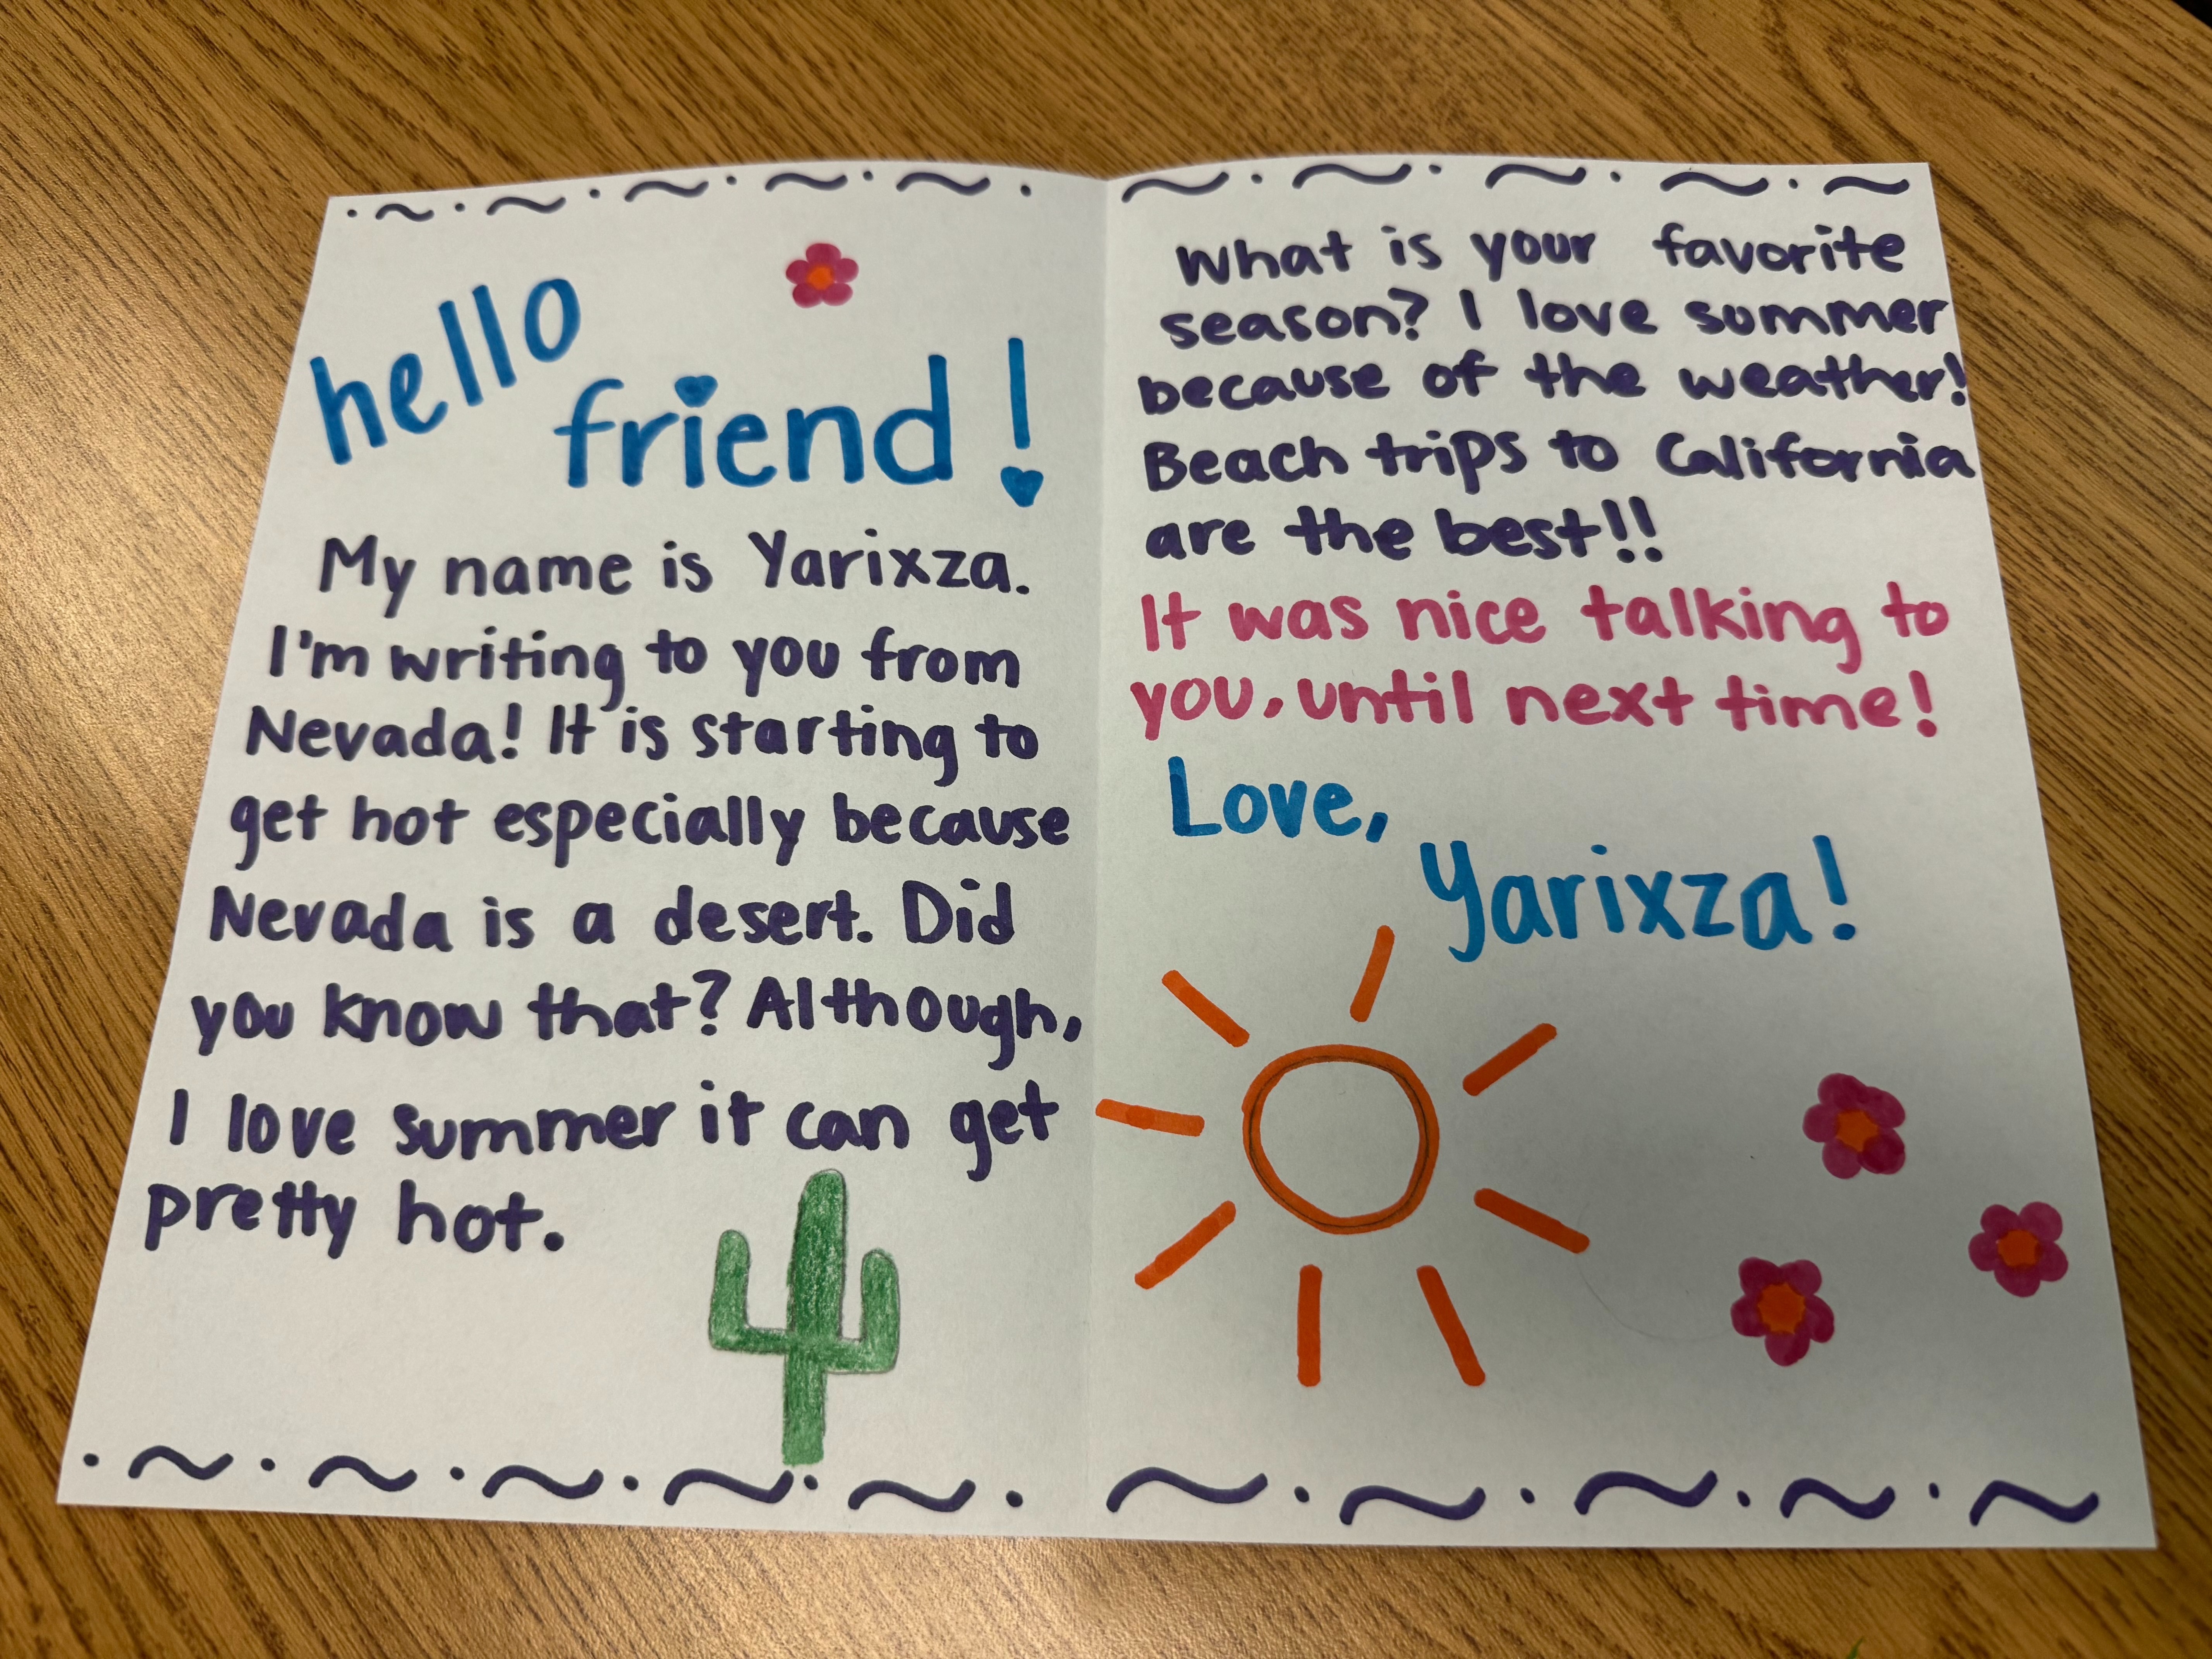 hello
friend!
My name is Yarixza.
I'm writing to you from
Nevada! It is starting to
get hot especially because
Nevada is a desert. Did
you know that? Although,
I love summer it can get
pretty hot.
What is your favorite
season? I love summer
because of the weather!
Beach trips to California
are the best!!
It was nice talking to
you, until next time!
Love,
Yarixza!